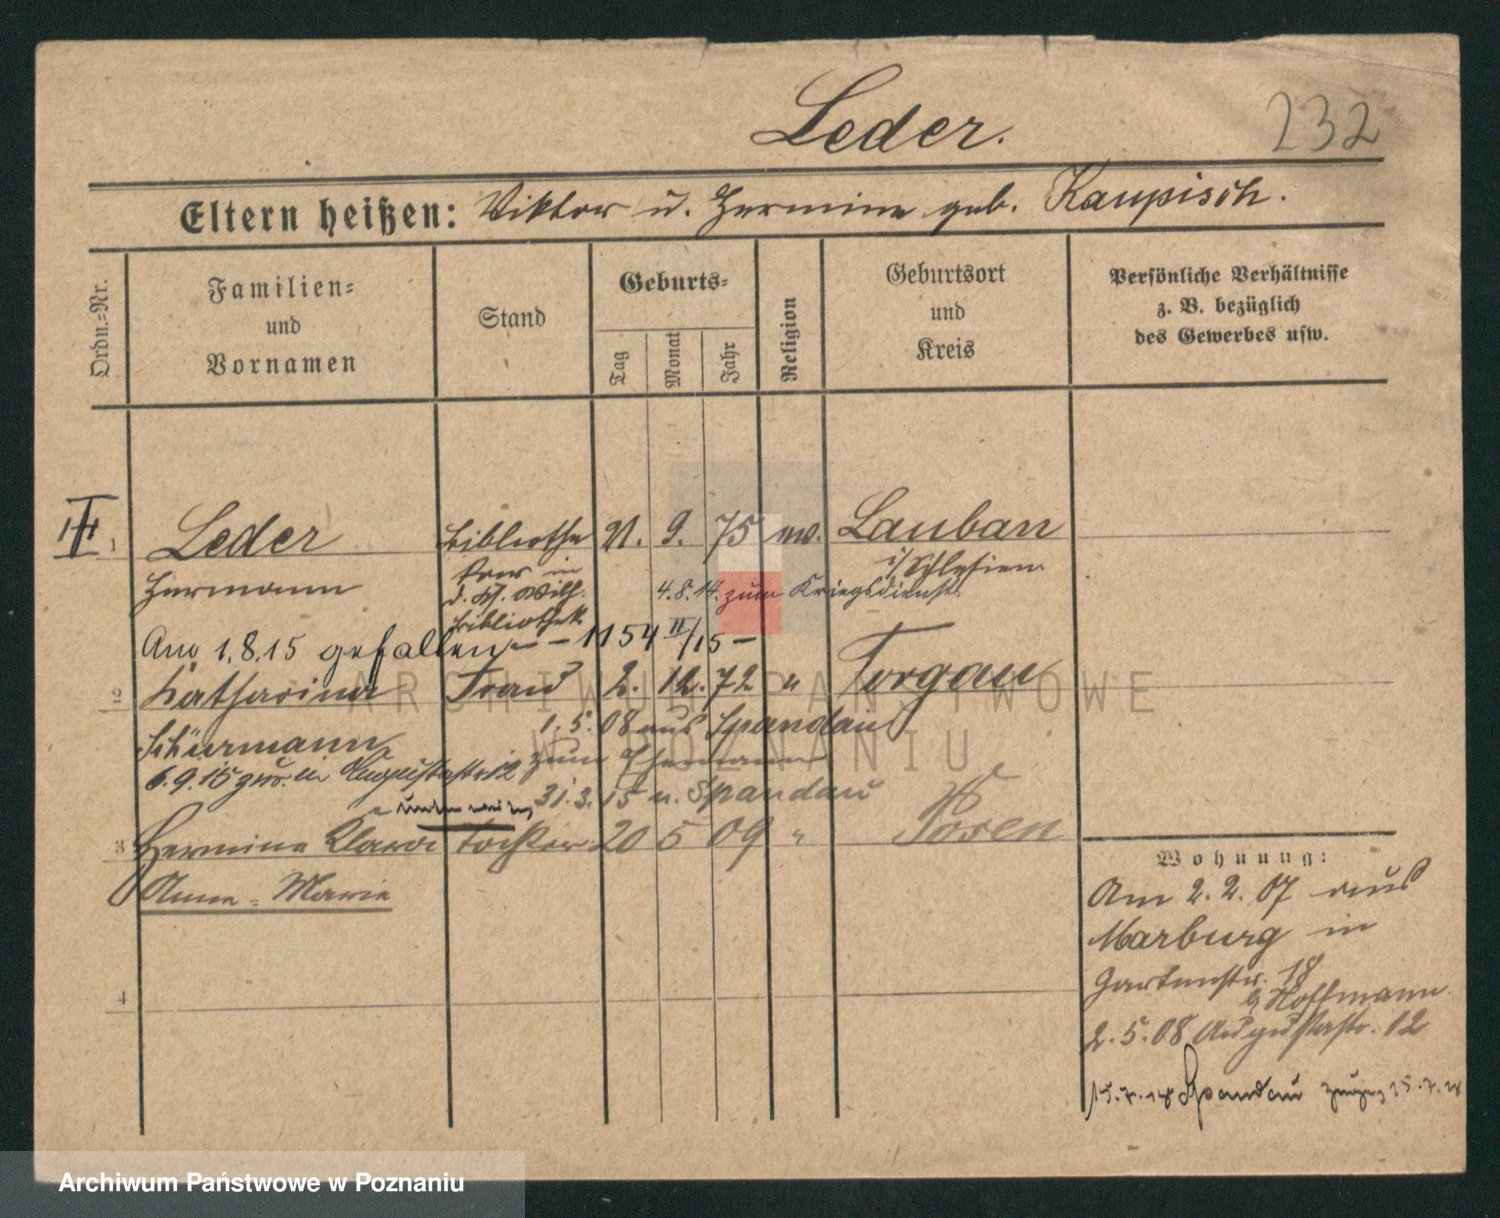 Leder.
232
Eltern heißen: Viktor u. Hermine geb. Kaupisch.
Ordn.-Nr.
Familien-
und
Vornamen
Stand
Geburts-
Tag
Monat
Jahr
Religion
Geburtsort
und
Kreis
Persönliche Verhältnisse
z. B. bezüglich
des Gewerbes usw.
III
1 Leder Bibliothe 21. 9. 75 ev. Lauban
kar in i/Schlesien.
Hermann d. K. Wilh. 4.8.14. zum Kriegsdienst.
Bibliothek
Am 1.8.15 gefallen — 1154 II/15 —
2 Katharina Frau 2. 12. 72 " Torgau
1.5.08 aus Spandau
Schürmann zum Ehemann
6.9.15 zur. in Augustastr 12
31.3.15 n. Spandau
3 Hermine Klara Tochter 20 5 09 " Posen
Anna-Marie
4
Wohnung:
Am 2.2.07 aus
Marburg in
Gartenstr. 18
b/ Hoffmann
2.5.08 Augustastr. 12
15.7.18 Spandau 15.7.18
ARCHIWUM PAŃSTWOWE
W POZNANIU
Archiwum Państwowe w Poznaniu